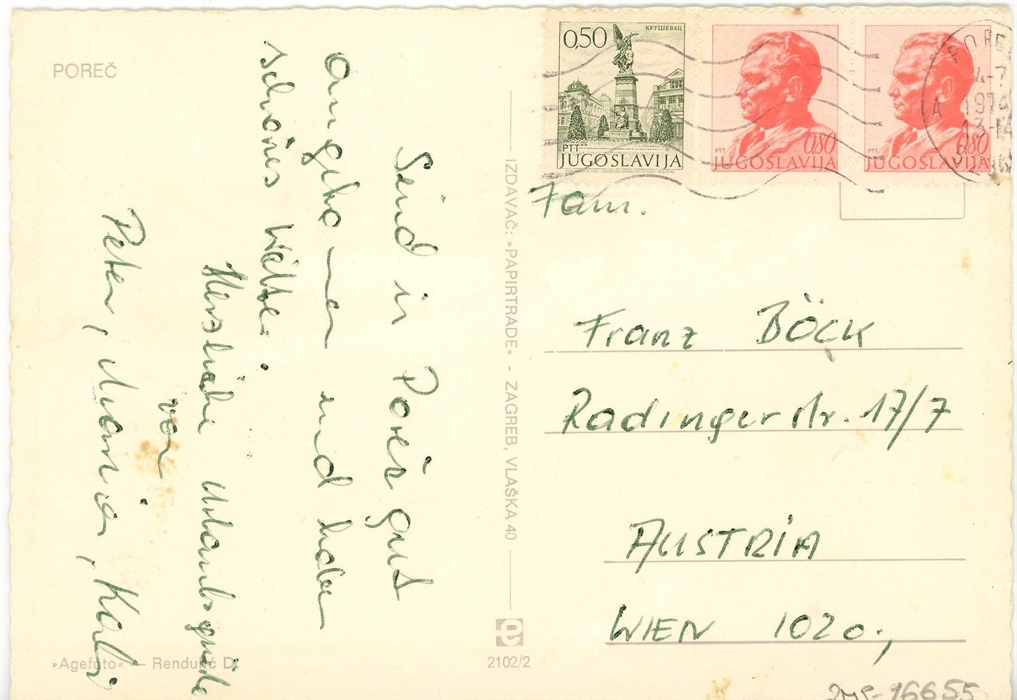 POREČ
Sind in Poreč gut
angekommen und haben
schönes Wetter.
Herzliche Urlaubsgrüße
von
Peter, Maria,
»Agefoto« — Rendulić D.
IZDAVAČ: »PAPIRTRADE« - ZAGREB, VLAŠKA 40
2102/2
0,50
КРУШЕВАЦ
PTT
JUGOSLAVIJA
PTT
0,80
JUGOSLAVIJA
PTT
0,80
JUGOSLAVIJA
1974
Fam.
Franz BÖCK
Radingerstr. 17/7
AUSTRIA
WIEN 1020.,
16655